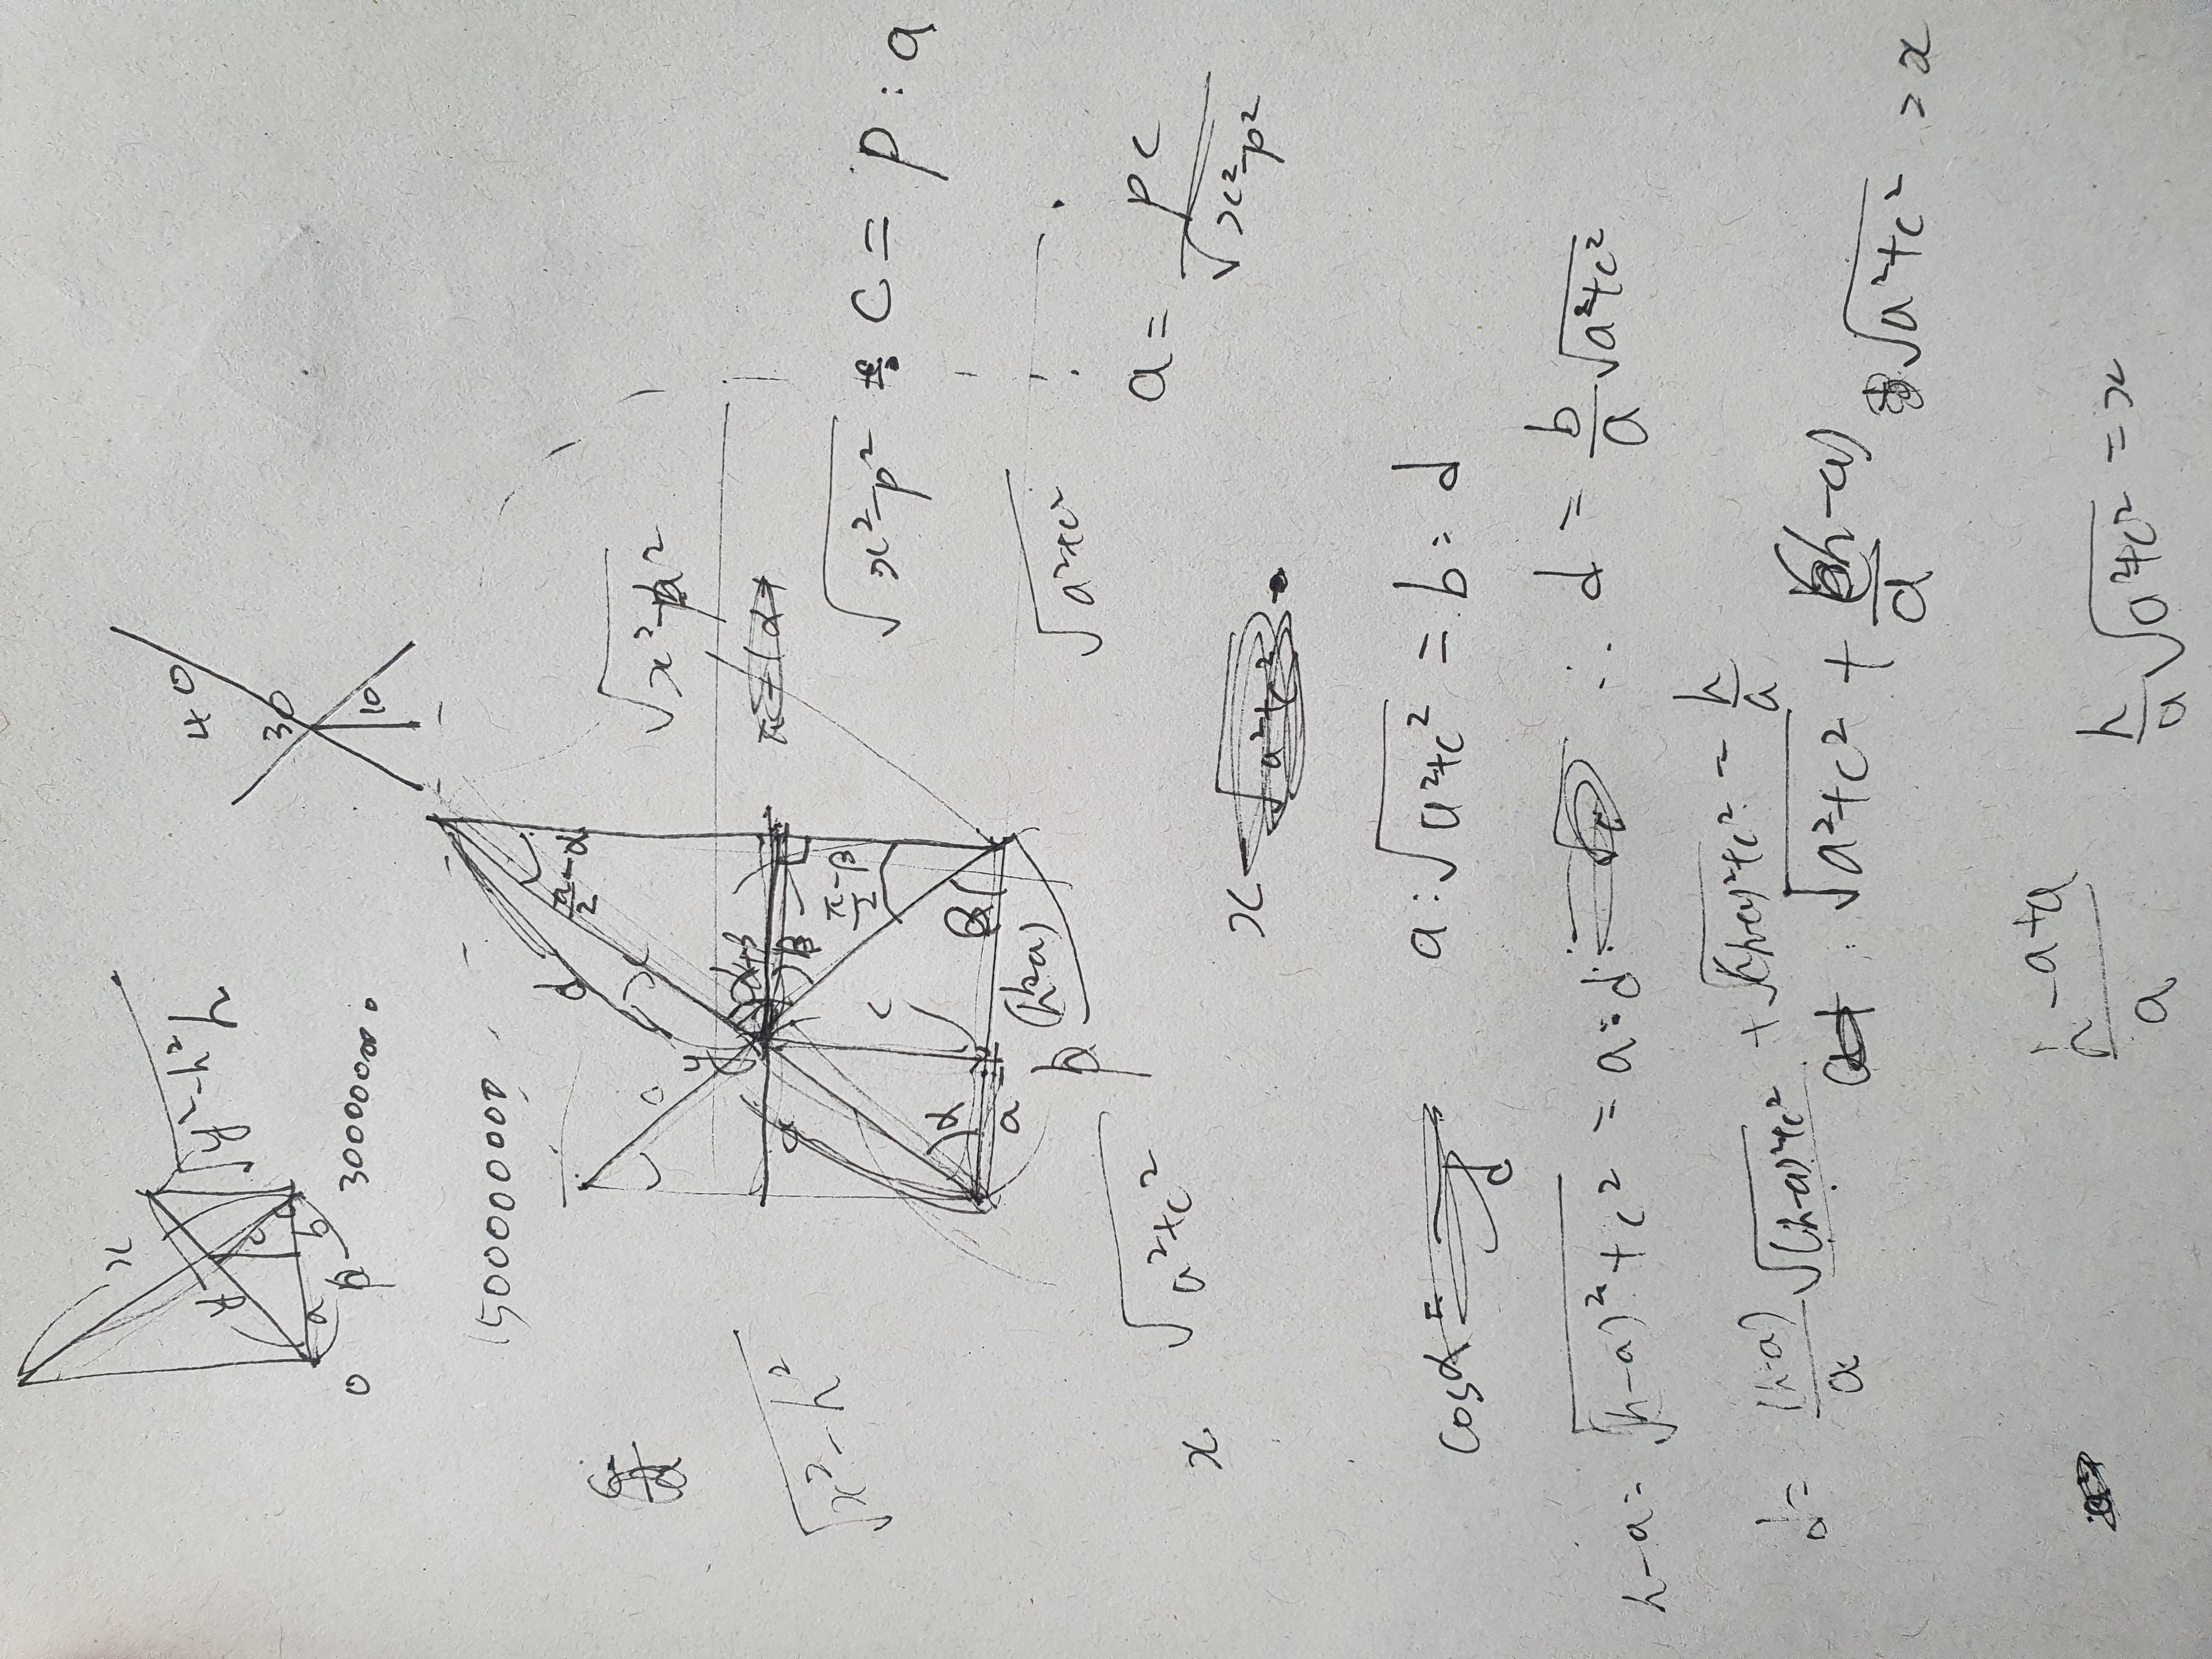 x
√(y²-h²)
h
y
c
a
b
0
h
3000000000.
40
30
10
1500000000
d
π/2-α
√(x²-h²)
α+β
β
π/2-β
c
α
a
(h-a)
h
√(x²-h²)
√(x²-p²) : c = p : a
√(a²+c²)
√(a²+c²)
a = pc/√(x²-p²)
x
x
cosα =
a : √(a²+c²) = b : d
h-a : √((h-a)²+c²) = a : d
∴ d = b/a √(a²+c²)
d = (h-a)/a √((h-a)²+c²) + √((h-a)²+c²) = h/a
√(a²+c²) + (h-a)/a √(a²+c²) = x
(h-a+a)/a
h/a √(a²+c²) = x